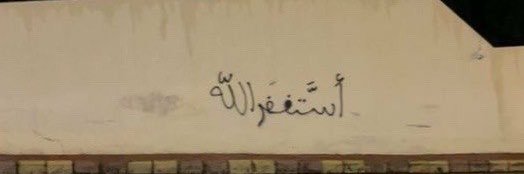 أستَّغفَر الله